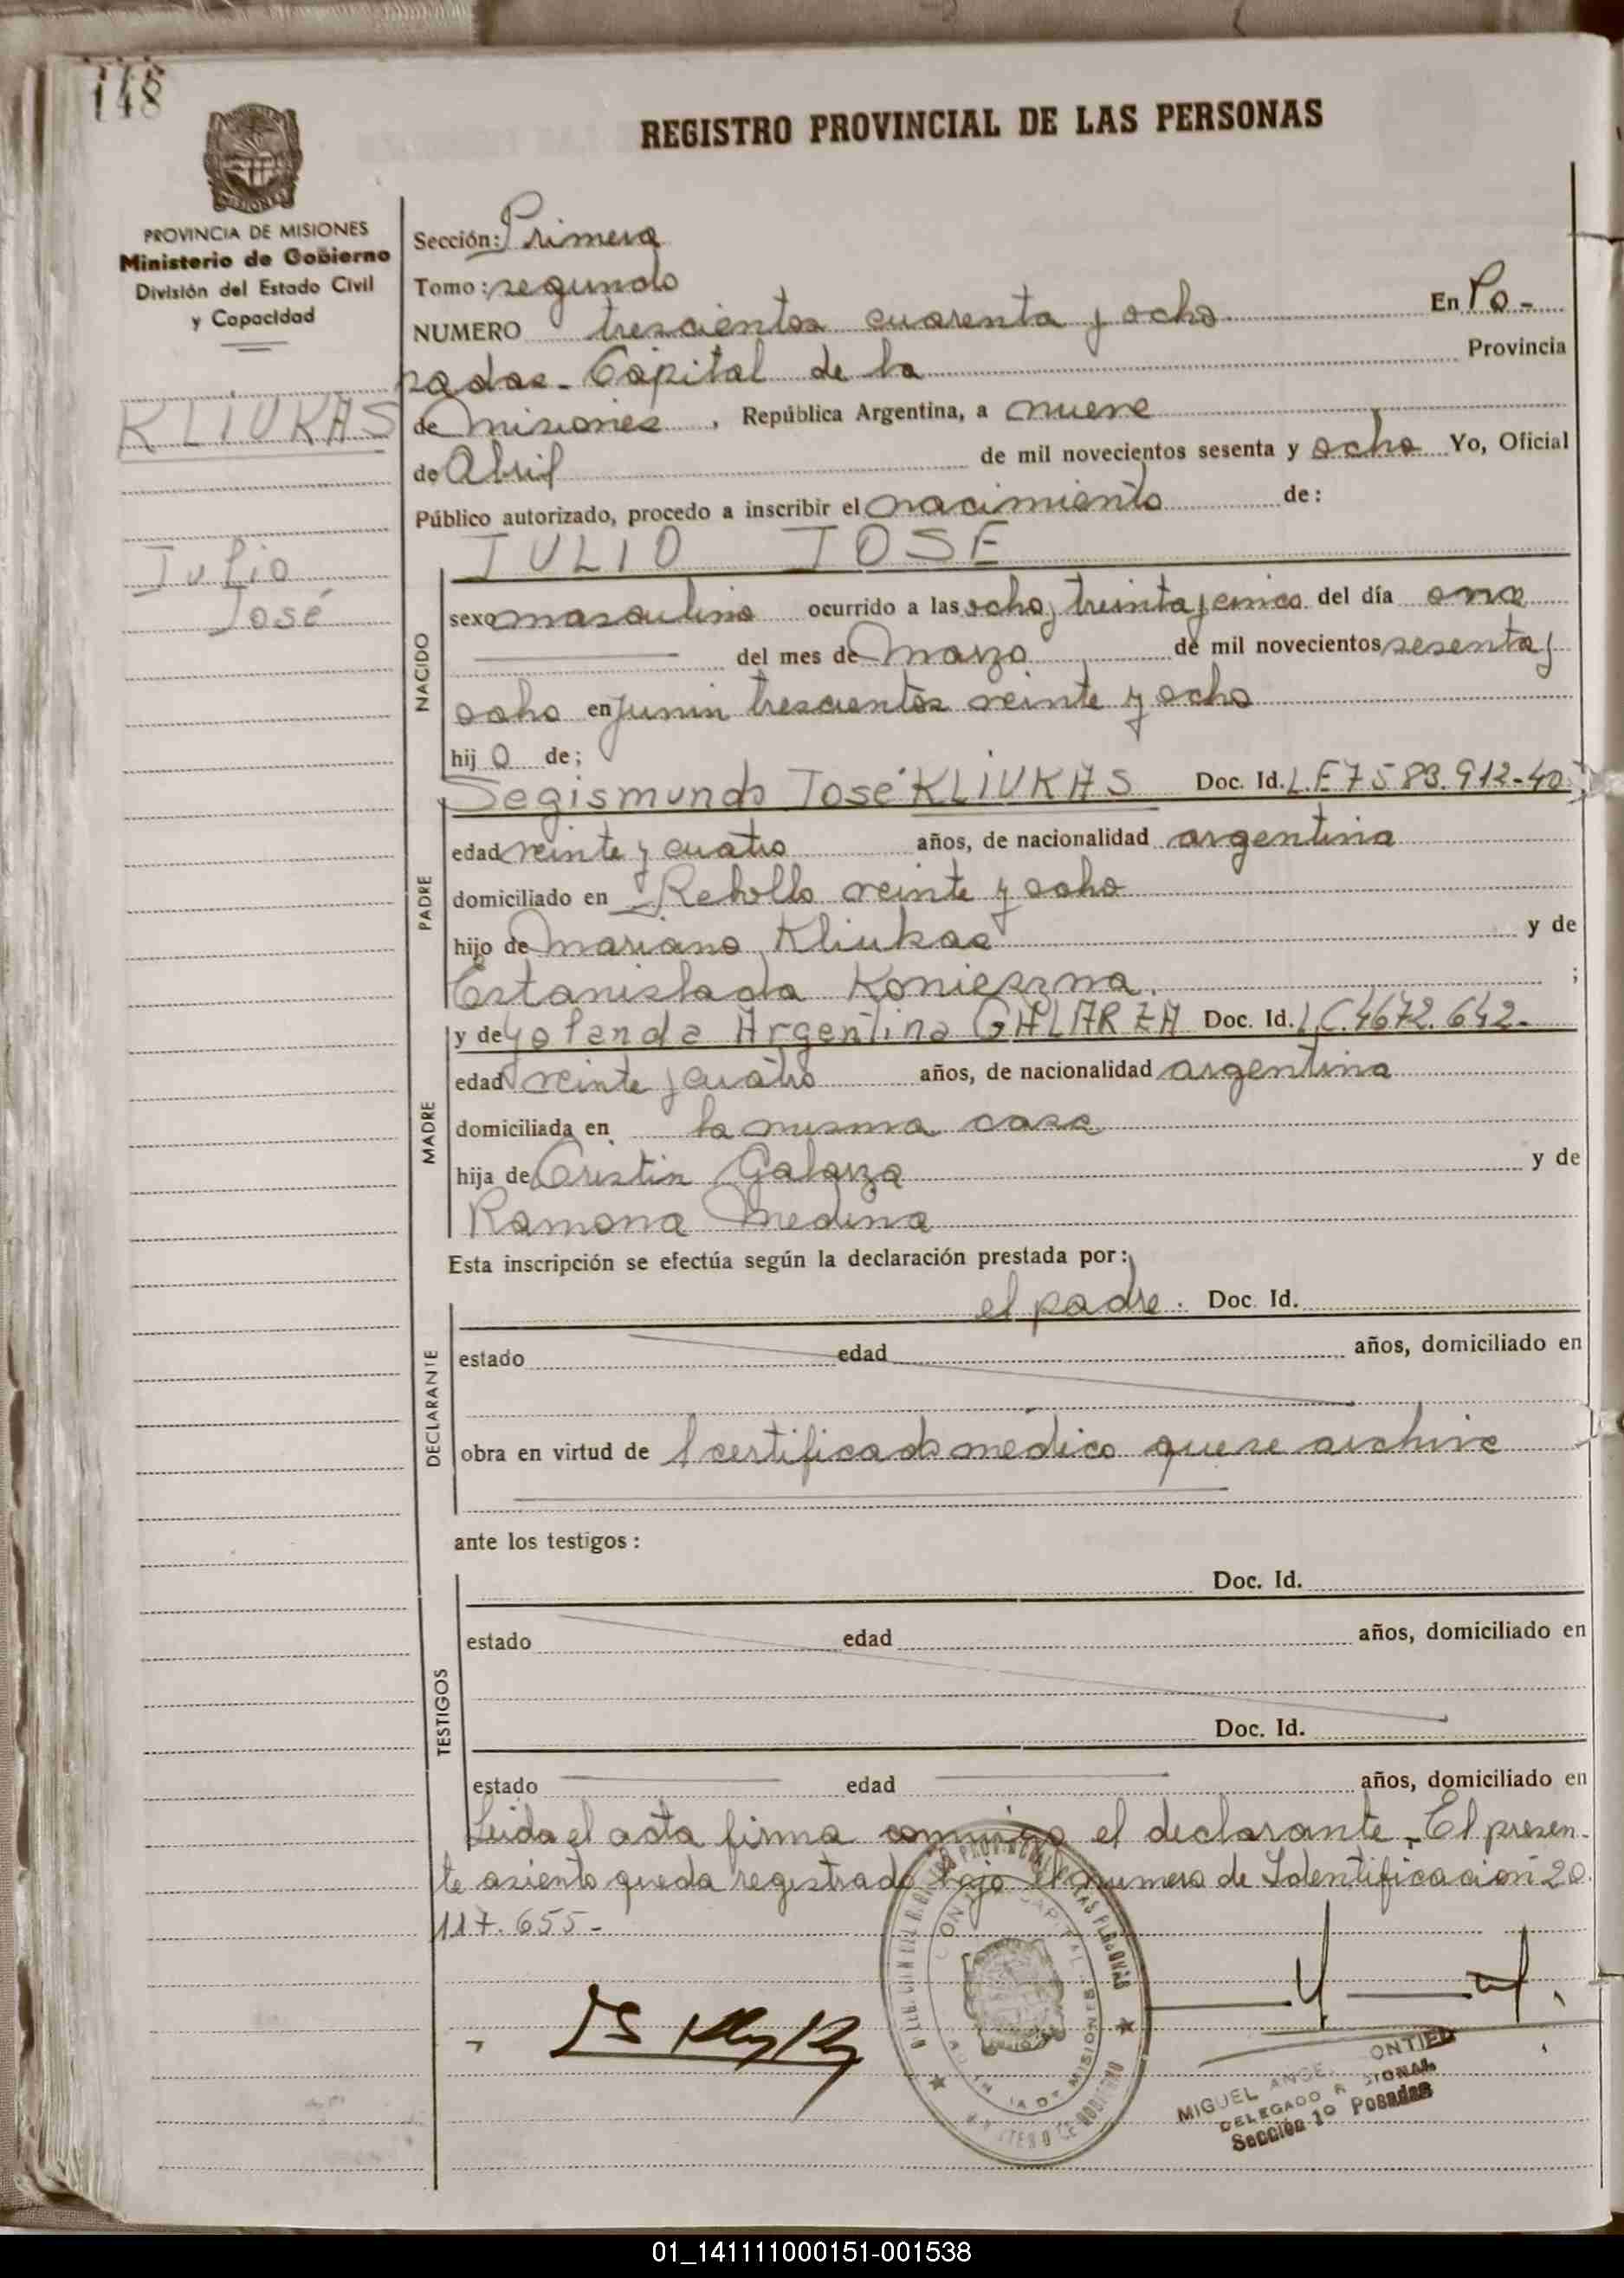 148
REGISTRO PROVINCIAL DE LAS PERSONAS
PROVINCIA DE MISIONES
Ministerio de Gobierno
División del Estado Civil
y Capacidad
KLIUKAS
Julio
José
Sección: Primera
Tomo: segundo
NUMERO trescientos cuarenta y ocho En Po-
sadas - Capital de la Provincia
de Misiones, República Argentina, a nueve
de Abril de mil novecientos sesenta y ocho Yo, Oficial
Público autorizado, procedo a inscribir el nacimiento de:
JULIO JOSE
NACIDO
sexo masculino ocurrido a las ocho y treinta y cinco del día once
del mes de Marzo de mil novecientos sesenta y
ocho en Junin trescientos veinte y ocho
hijo de;
PADRE
Segismundo José KLIUKAS Doc. Id. L.E 7583.912-40
edad veinte y cuatro años, de nacionalidad argentina
domiciliado en Rebollo veinte y ocho
hijo de Mariano Kliukas y de
Estanislada Konieszna. ;
MADRE
y de Yolanda Argentina GALARZA Doc. Id. L.C.4672.642-
edad veinte y cuatro años, de nacionalidad argentina
domiciliada en la misma casa
hija de Cristin Galarza y de
Ramona Medina
Esta inscripción se efectúa según la declaración prestada por:
DECLARANTE
el padre. Doc. Id.
estado edad años, domiciliado en
obra en virtud de l certificado médico que se archiva
ante los testigos:
TESTIGOS
Doc. Id.
estado edad años, domiciliado en
Doc. Id.
estado edad años, domiciliado en
Leida el acta firma conmigo el declarante - El presen-
te asiento queda registrado bajo el numero de Identificacion 20.
117.655-
MIGUEL
DELEGADO
Sección 1º Posadas
01_141111000151-001538